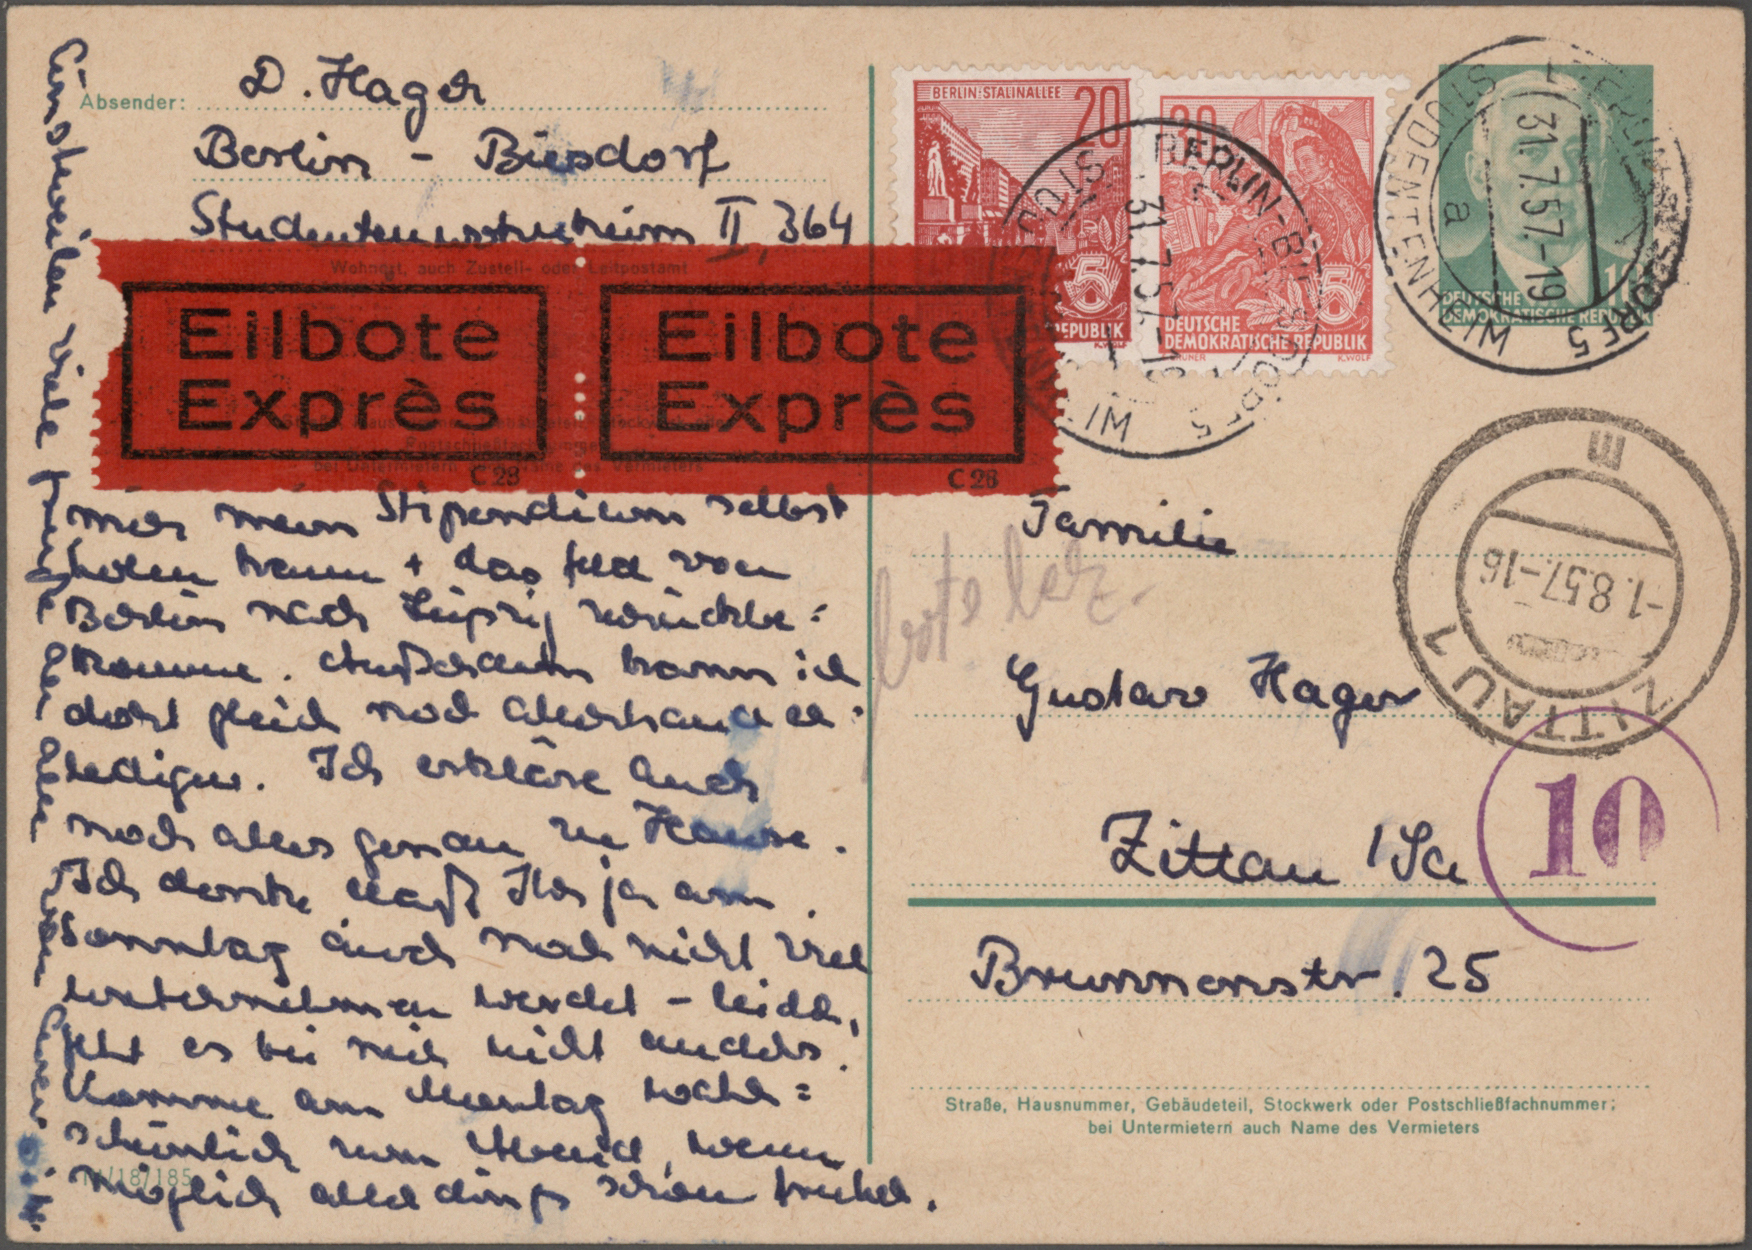 Absender: D. Hager
Berlin - Biesdorf
Studentenwohnheim II, 364
Wohnort, auch Zustell- oder Leitpostamt
Eilbote Eilbote
Exprès Exprès
C 28 C 28
Postschließfachnummer
bei Untermietern auch Name des Vermieters
mir mein Stipendium selbst
holen kann + das Geld von
Berlin nach Leipzig zurückbe=
komme. Außerdem kann ich
dort gleich noch allerhand er=
ledigen. Ich erkläre Euch
noch alles genau zu Hause.
Ich denke, daß Ihr ja am
Sonntag auch noch nicht viel
unternehmen werdet - leider,
geht es bei mir nicht anders.
Komme am Montag wahr=
scheinlich zum Abend, wenn
möglich allerdings schon früher.
Einstweilen viele
M/18/185
BERLIN-STALINALLEE 20
5
REPUBLIK
K.WOLF
30
5
DEUTSCHE
DEMOKRATISCHE REPUBLIK
GRUNER K.WOLF
BERLIN-BIESDORF 5
STUDENTENHEIM
31.7.57.-19
a
DEUTSCHE
DEMOKRATISCHE REPUBLIK
BERLIN-BIESDORF 5
STUDENTENHEIM
31.7.57.-19
ZITTAU 1
-1.8.57.-16
m
10
Familie
Gustav Hager
Zittau /Sa
Brunnenstr. 25
Straße, Hausnummer, Gebäudeteil, Stockwerk oder Postschließfachnummer;
bei Untermietern auch Name des Vermieters